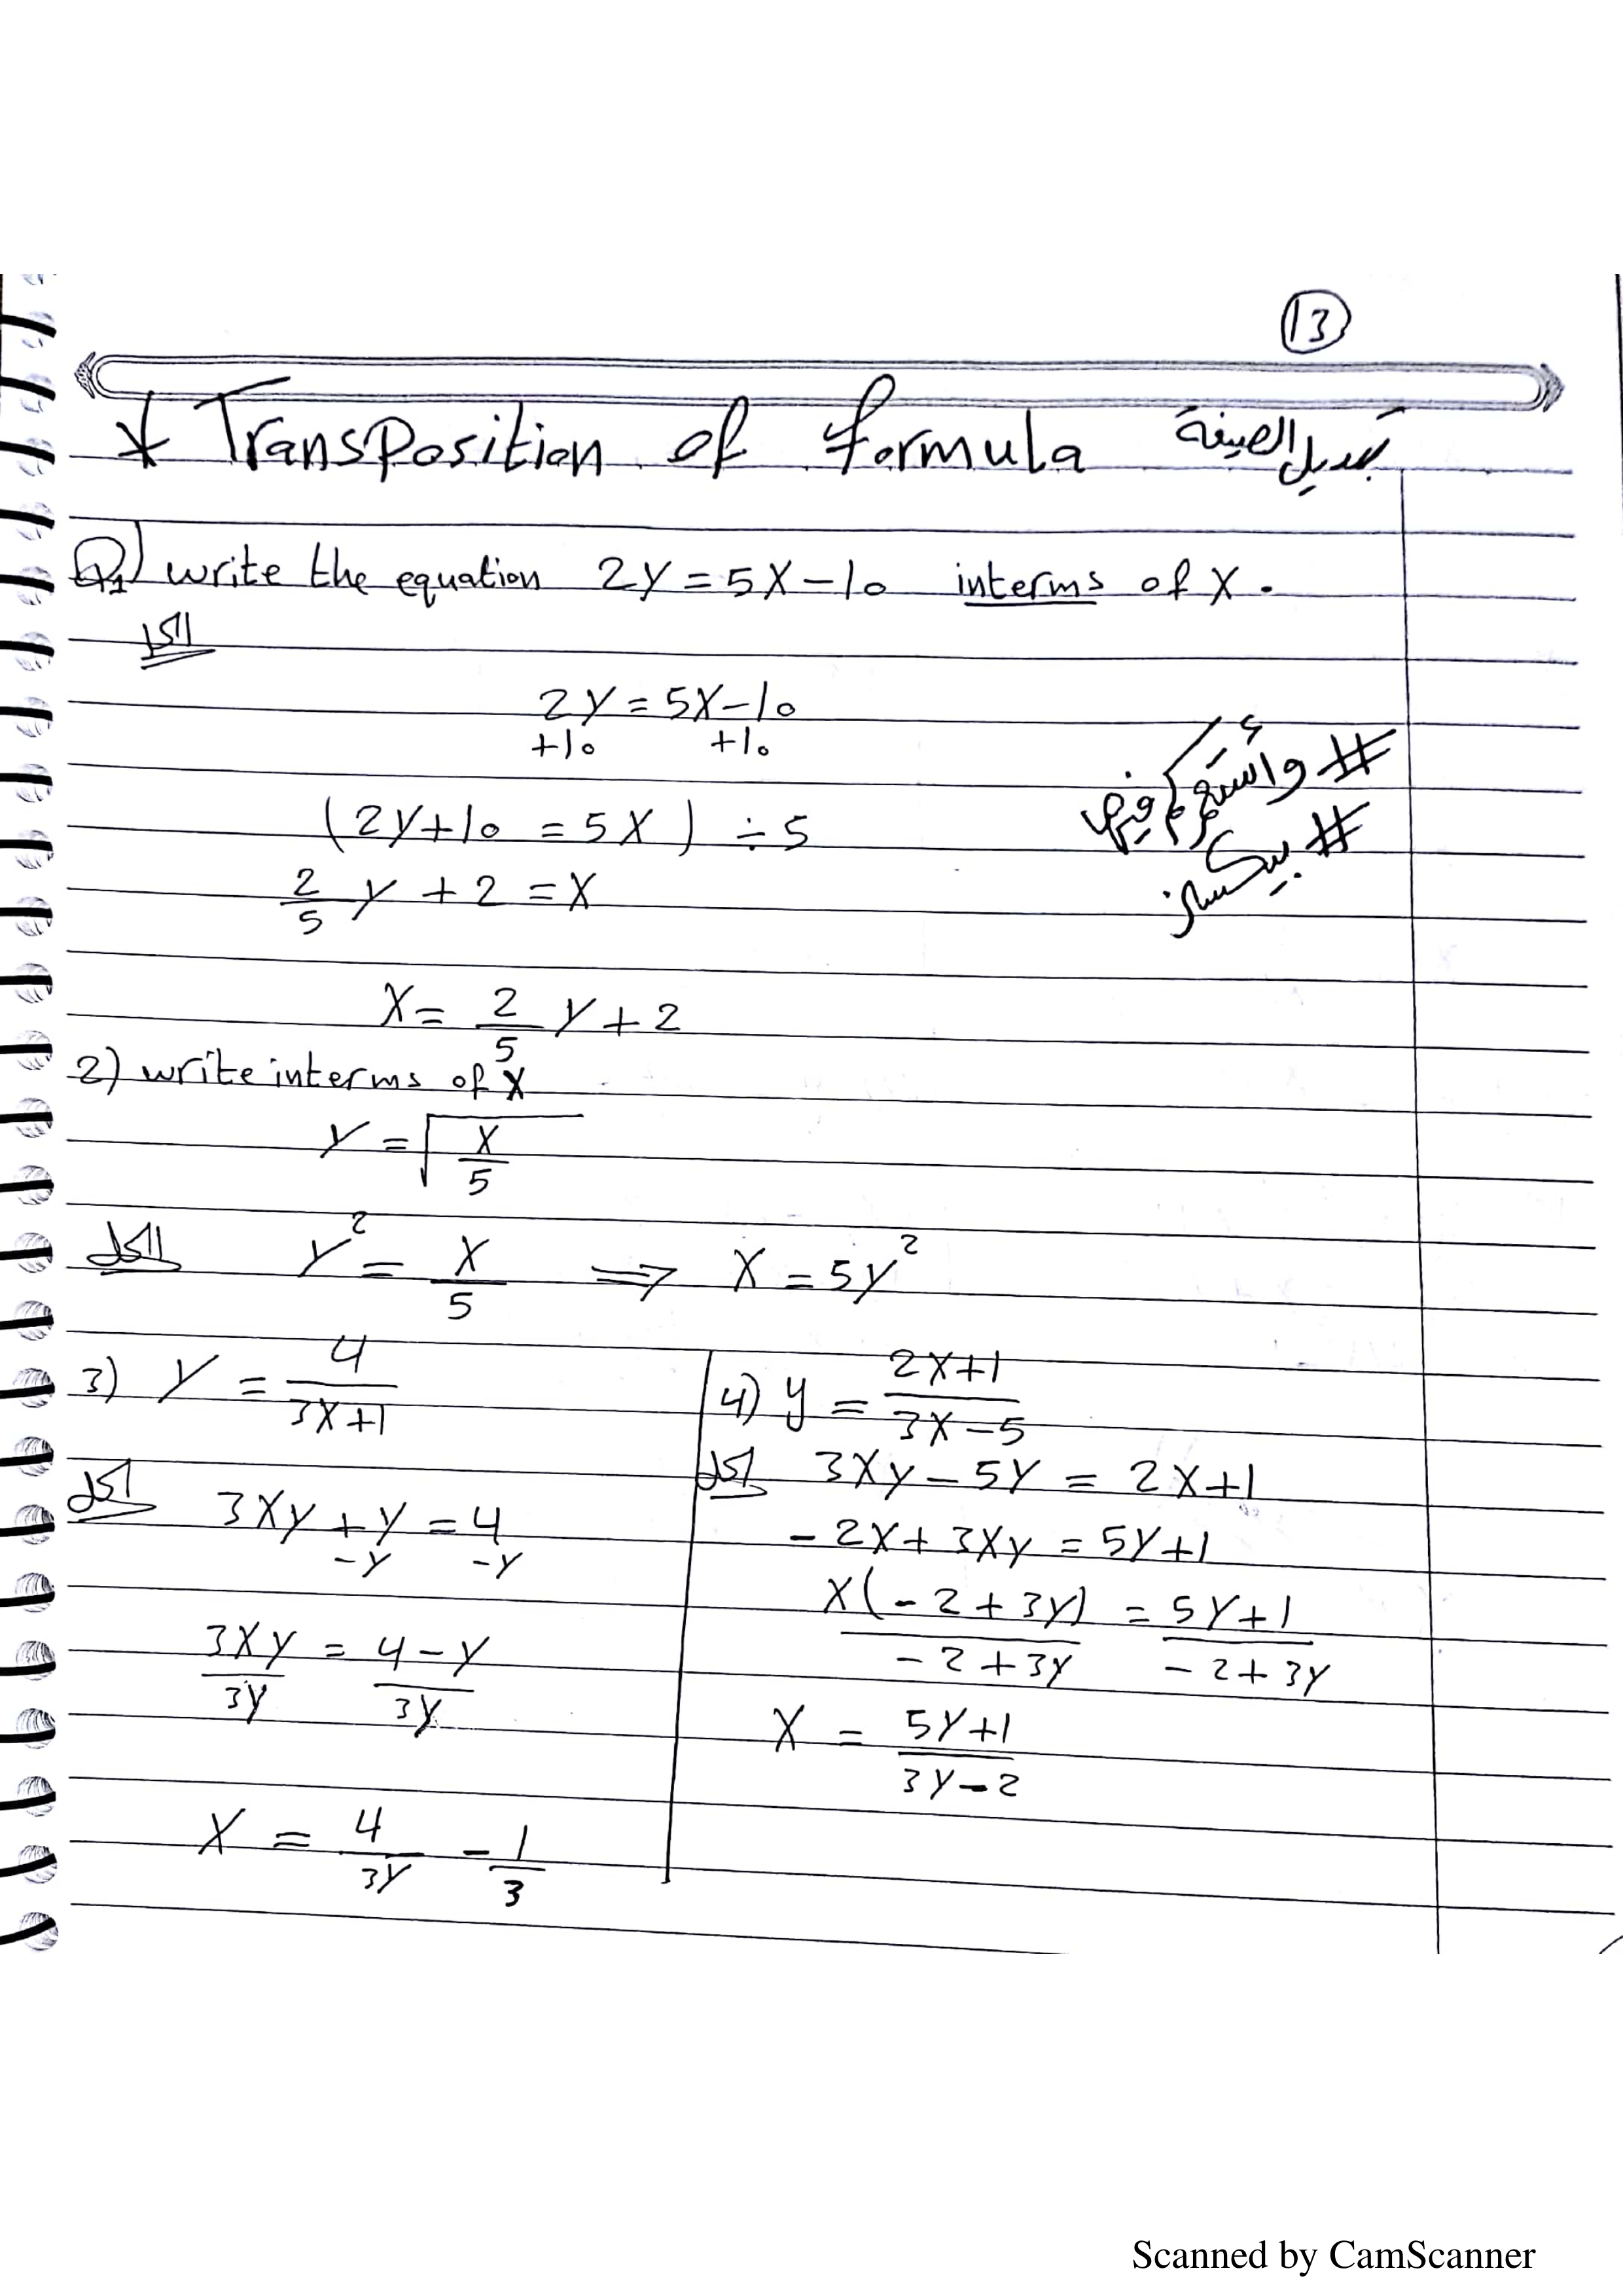 13
* Transposition of formula تبديل الصيغة
Q1) write the equation 2y = 5x - 10 interms of x.
الحل
2y = 5x - 10
+10 +10
(2y + 10 = 5x) ÷ 5
2/5 y + 2 = x
x = 2/5 y + 2
2) write interms of x
y = √(x/5)
الحل y² = x/5 ⇒ x = 5y²
3) y = 4/(3x+1)
الحل 3xy + y = 4
-y -y
3xy/3y = (4 - y)/3y
x = 4/3y - 1/3
4) y = (2x+1)/(3x-5)
الحل 3xy - 5y = 2x+1
-2x + 3xy = 5y+1
x(-2+3y)/(-2+3y) = (5y+1)/(-2+3y)
x = (5y+1)/(3y-2)
Scanned by CamScanner